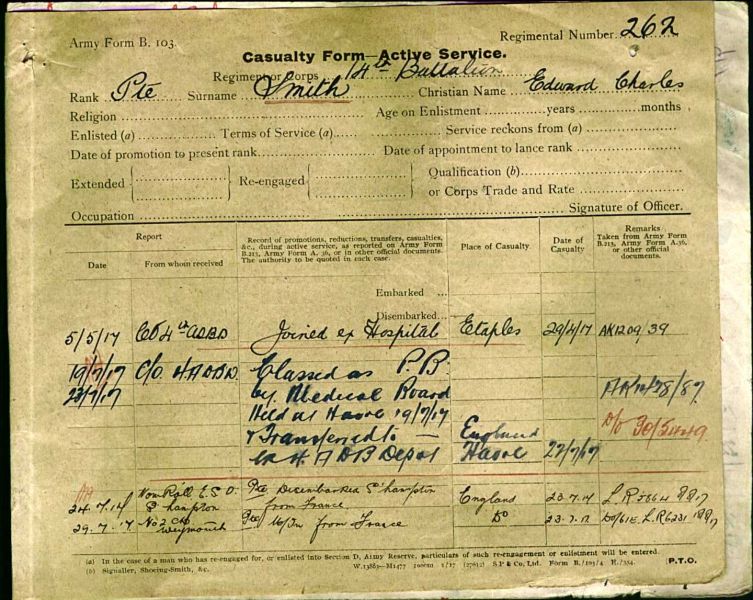 Army Form B. 103.
Regimental Number 262
Casualty Form—Active Service.
Regiment or Corps 14th Battalion
Rank Pte Surname Smith Christian Name Edward Charles
Religion Age on Enlistment years months
Enlisted (a) Terms of Service (a) Service reckons from (a)
Date of promotion to present rank Date of appointment to lance rank
Extended Re-engaged Qualification (b)
or Corps Trade and Rate
Occupation Signature of Officer.
Report
Date From whom received
Record of promotions, reductions, transfers, casualties,
&c., during active service, as reported on Army Form
B.213, Army Form A. 36, or in other official documents.
The authority to be quoted in each case.
Place of Casualty
Date of
Casualty
Remarks
Taken from Army Form
B.213, Army Form A.36,
or other official
documents.
Embarked
Disembarked
5/5/17 CO 4th ADBD Joined ex Hospital Etaples 29/4/17 39
19/7/17 C/O Classed as P.B.
23/7/17 by Medical Board
Held at Havre 19/7/17
& Transferred to — England
ex Depot Havre 22/7/17
24.7.17 Nom Roll E.S.O. Pte Disembarked S'hampton England 23.7.17
S'hampton from France
29.7.17 No 2 Co Pte M/In from France Do 23.7.17
Weymouth
(a) In the case of a man who has re-engaged for, or enlisted into Section D, Army Reserve, particulars of such re-engagement or enlistment will be entered.
(b) Signaller, Shoeing-Smith, &c.
S.P & Co., Ltd. Form B./103/4
P.T.O.